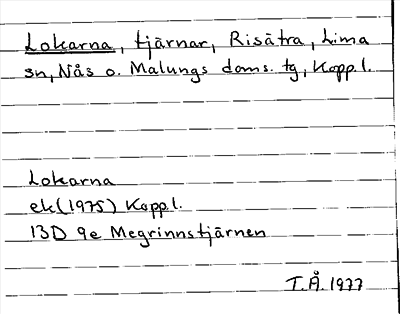 Lokarna, tjärnar, Risätra, Lima
sn, Nås o. Malungs doms. tg, Kopp. l.
Lokarna
ek (1975) Kopp. l.
13D 9e Megrinnstjärnen
T.Å. 1977